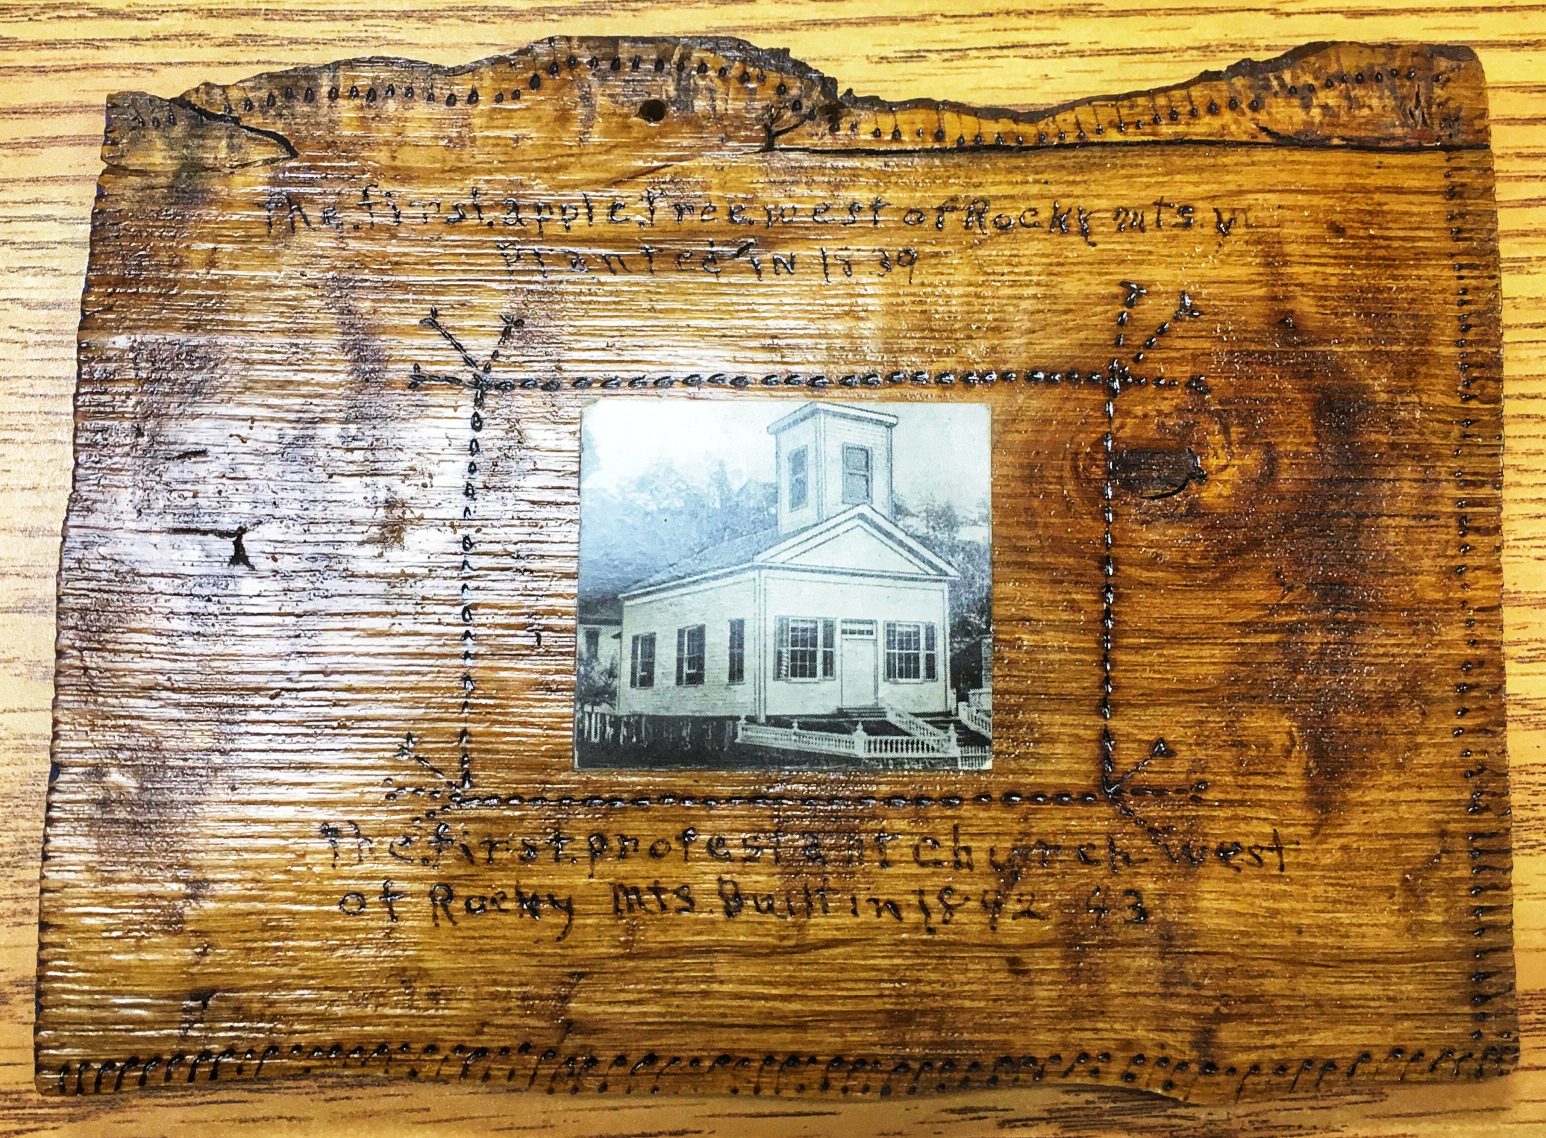 The first apple tree west of Rocky mts.
Planted in 1839
The first protestant Church west
of Rocky Mts. Built in 1842 43